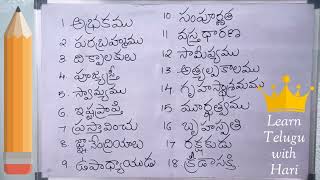 1 అభ్రకము
2 పరబ్రహ్మము
3 దిక్పాలకులు
4 పూజ్యశ్రీ
5 స్వామ్యము
6 ఇష్టప్రాప్తి
7 ప్రస్తావించు
8 జ్ఞానేంద్రియాలు
9 ఉపాధ్యాయుడు
10 సంపూర్ణత
11 వస్త్రధారణ
12 సామీప్యము
13 అత్యల్పకాలము
14 గృహస్థాశ్రమము
15 మూర్ఖత్వము
16 బృహస్పతి
17 రక్షకుడు
18 క్రీడాసక్తి
Learn
Telugu
with
Hari